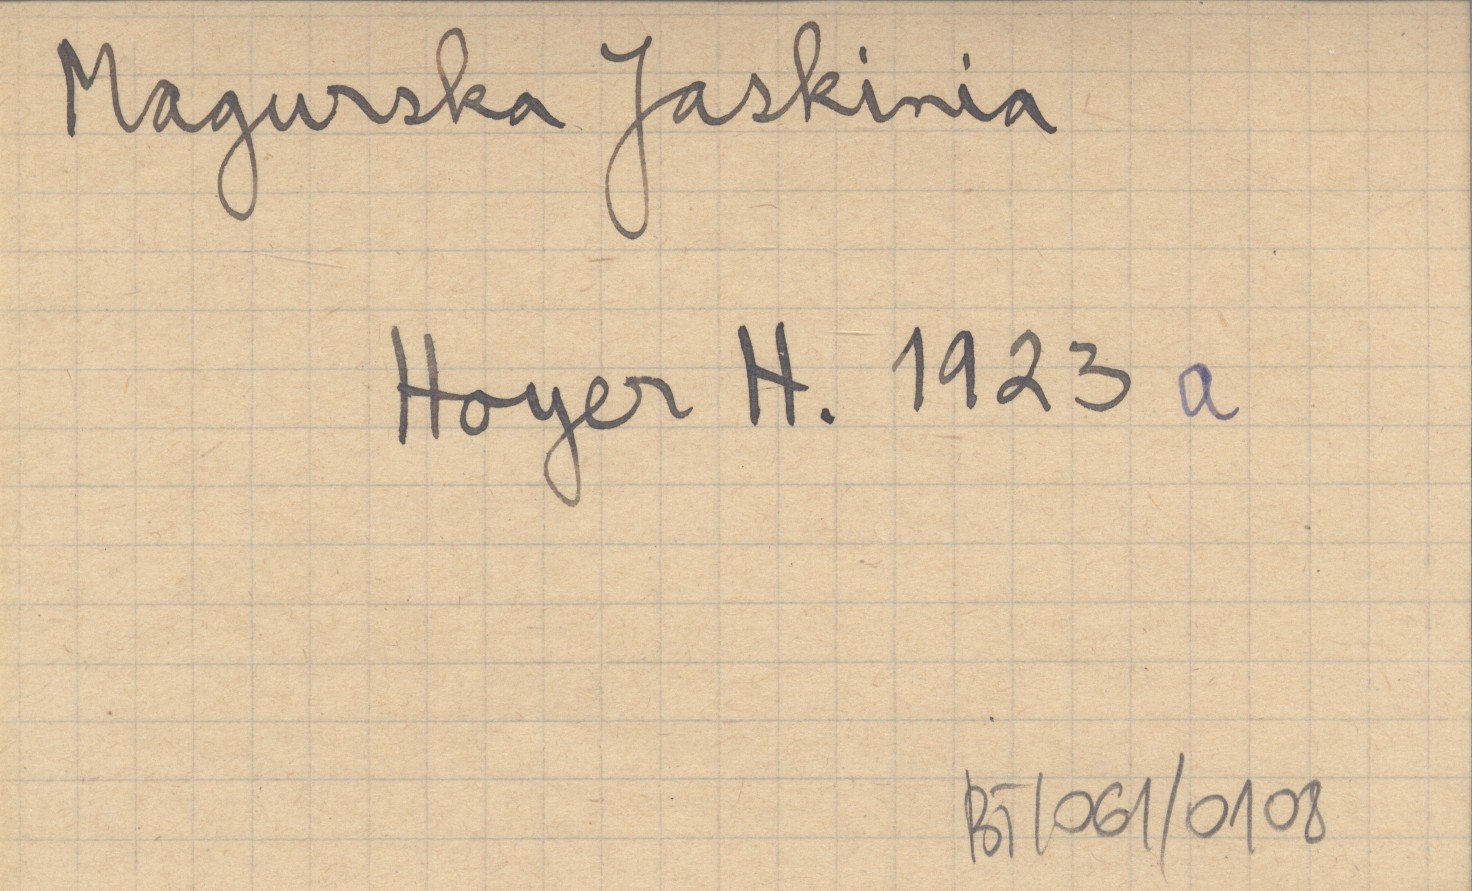 Magurska Jaskinia
Hoyer H. 1923 a
BT/061/0108